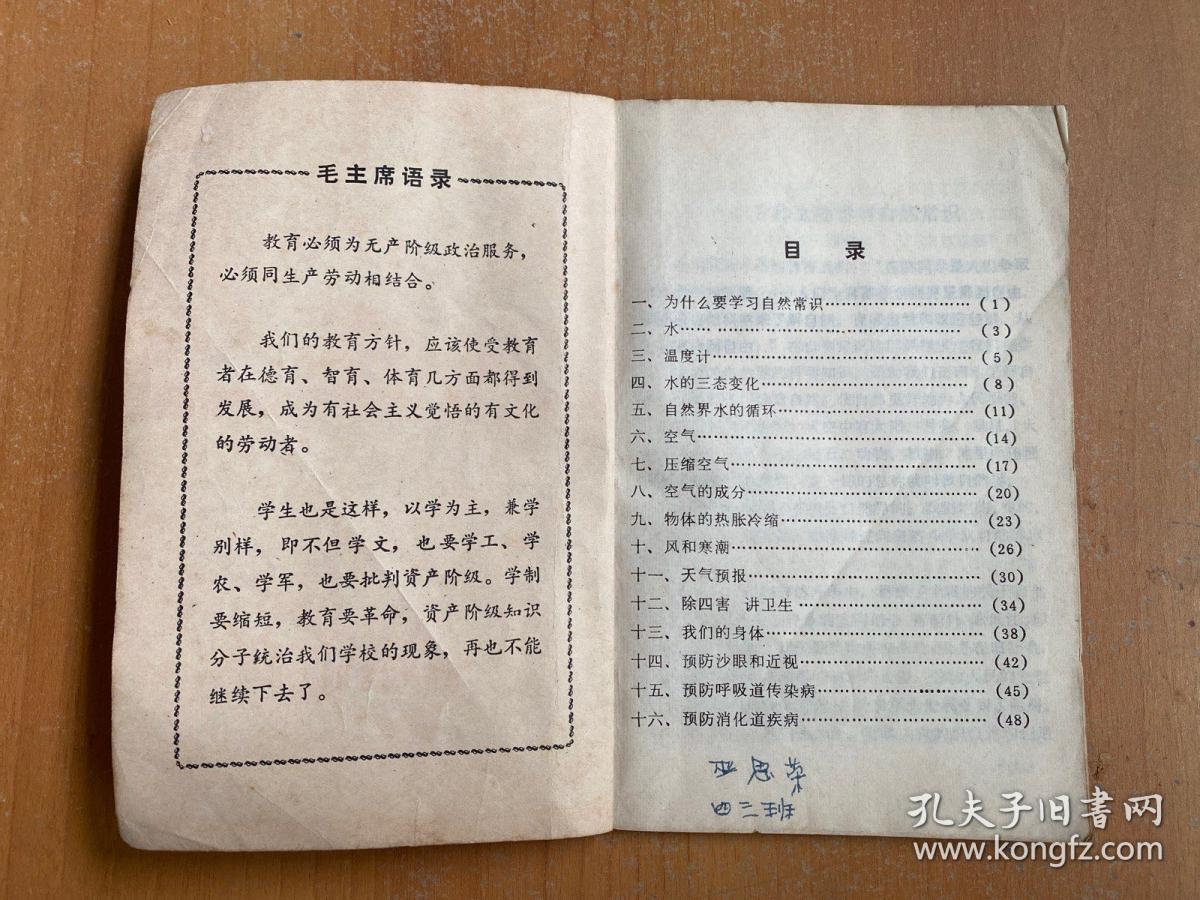 毛主席语录
教育必须为无产阶级政治服务，
必须同生产劳动相结合。
我们的教育方针，应该使受教育
者在德育、智育、体育几方面都得到
发展，成为有社会主义觉悟的有文化
的劳动者。
学生也是这样，以学为主，兼学
别样，即不但学文，也要学工、学
农、学军，也要批判资产阶级。学制
要缩短，教育要革命，资产阶级知识
分子统治我们学校的现象，再也不能
继续下去了。
目 录
一、为什么要学习自然常识………………（1）
二、水…………………………………（3）
三、温度计……………………………（5）
四、水的三态变化………………………（8）
五、自然界水的循环……………………（11）
六、空气………………………………（14）
七、压缩空气……………………………（17）
八、空气的成分…………………………（20）
九、物体的热胀冷缩……………………（23）
十、风和寒潮……………………………（26）
十一、天气预报…………………………（30）
十二、除四害 讲卫生……………………（34）
十三、我们的身体………………………（38）
十四、预防沙眼和近视…………………（42）
十五、预防呼吸道传染病………………（45）
十六、预防消化道疾病…………………（48）
四三班
孔夫子旧书网
www.kongfz.com